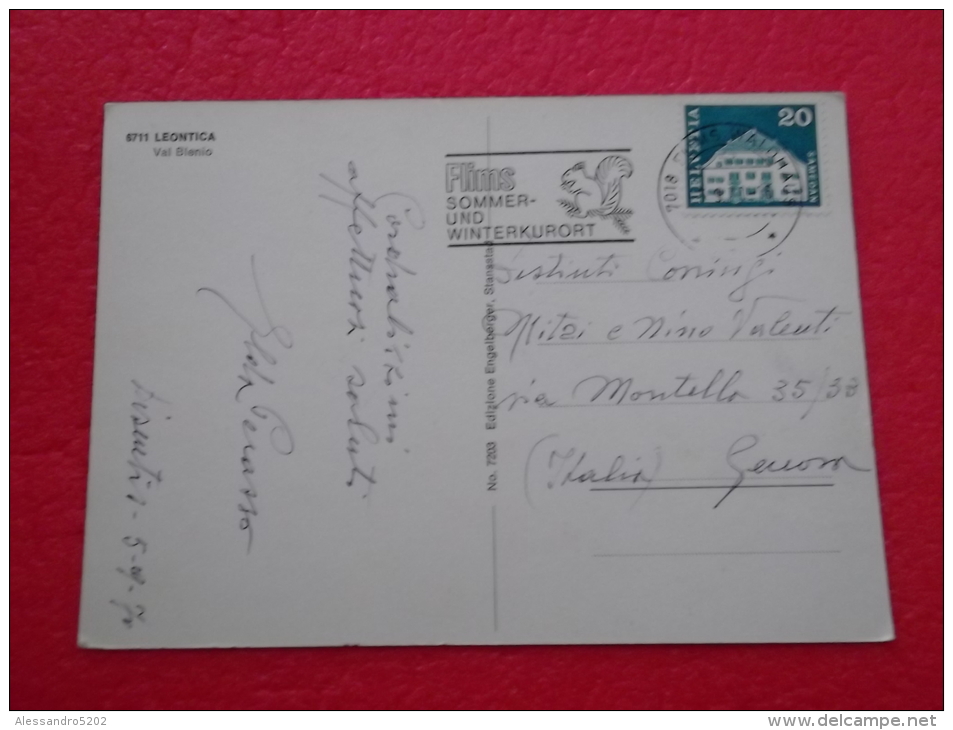 6711 LEONTICA
Val Blenio
Flims
SOMMER-
UND
WINTERKURORT
HELVETIA
20
SAMEDAN
7018 FLIMS WALDHAUS
No. 7203 Edizione Engelberger, Stansstad
Cordialissimi
affettuosi saluti
Perasso
5-9-70
Distinti Coniugi
Mitzi e Nino Valenti
via Montello 35/38
(Italia) Genova
Alessandro5202
www.delcampe.net